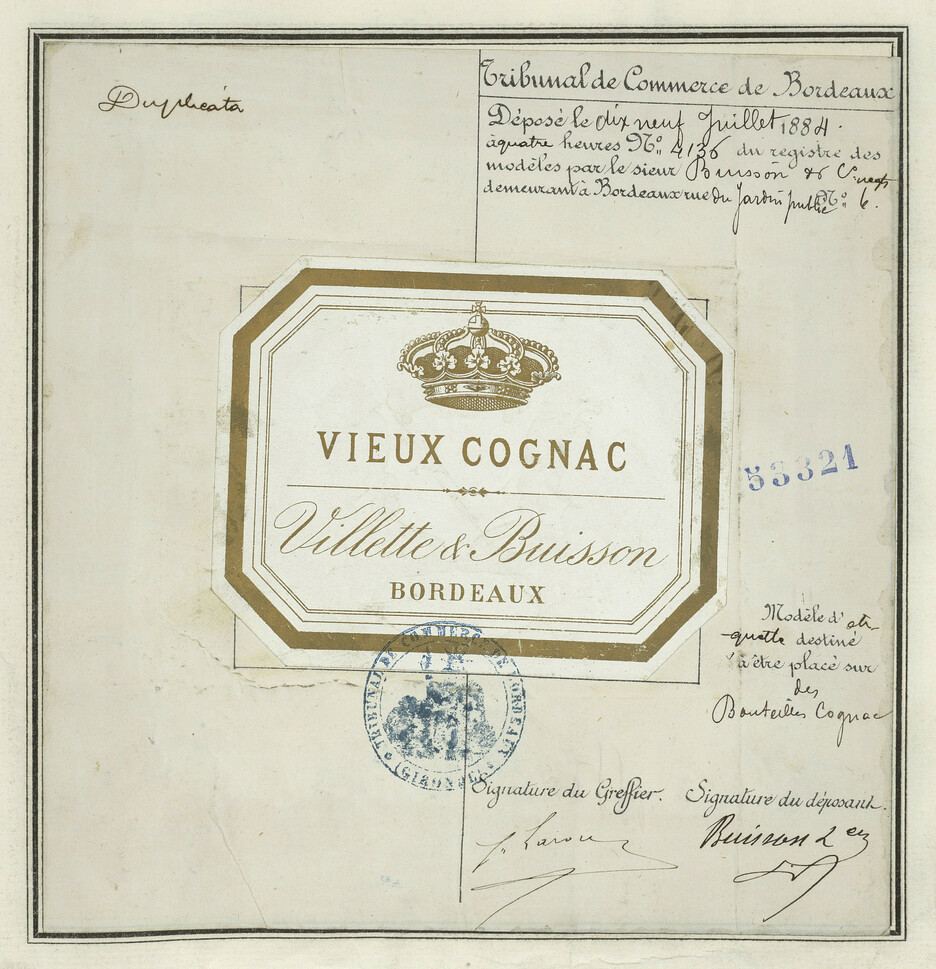 Duplicata
Tribunal de Commerce de Bordeaux
Déposé le dix neuf Juillet 1884.
à quatre heures No. 4136 du registre des
modèles par le sieur Buisson & Cie negts
demeurant à Bordeaux rue du Jardin public No. 6.
VIEUX COGNAC
Villette & Buisson
BORDEAUX
53321
Modèle d'eti-
quette destiné
à être placé sur
des
Bouteilles Cognac
TRIBUNAL DE COMMERCE DE BORDEAUX
(GIRONDE)
Signature du Greffier.
Signature du déposant.
Buisson